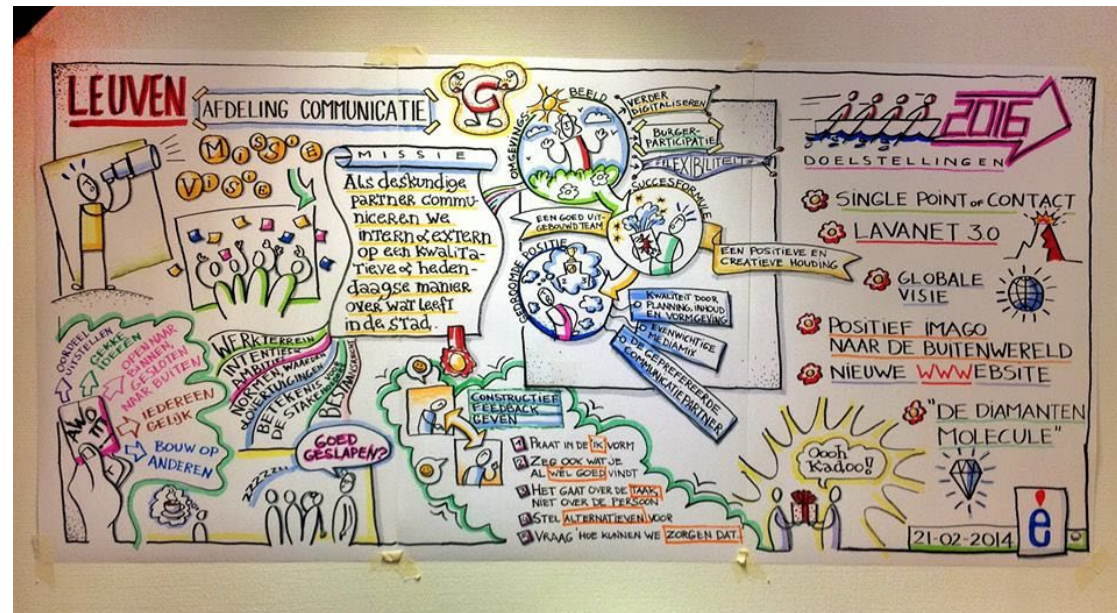 LEUVEN
AFDELING COMMUNICATIE
MISSIE
VISIE
MISSIE
Als deskundige
partner commu-
niceren we
intern & extern
op een kwalita-
tieve & heden-
daagse manier
over wat leeft
in de stad.
WERKTERREIN
INTENTIES &
AMBITIES
NORMEN, WAARDEN
& OVERTUIGINGEN
BETEKENIS VOOR
DE STAKEHOLDERS
BESTAANSRECHT
OORDEEL
UITSTELLEN
GEKKE
IDEEËN
OPEN NAAR
BINNEN,
GESLOTEN
NAAR
BUITEN
IEDEREEN
GELIJK
BOUW OP
ANDEREN
GOED
GESLAPEN?
ZZZZZ
OMGEVINGS-
BEELD
VERDER
DIGITALISEREN
BURGER-
PARTICIPATIE
FLEXIBILITEIT
SUCCESFORMULE
EEN GOED UIT-
GEBOUWD TEAM
EEN POSITIEVE EN
CREATIEVE HOUDING
GEDROOMDE POSITIE
KWALITEIT DOOR
PLANNING, INHOUD
EN VORMGEVING
EVENWICHTIGE
MEDIAMIX
DE GEPREFEREERDE
COMMUNICATIEPARTNER
CONSTRUCTIEF
FEEDBACK
GEVEN
1 PRAAT IN DE IK VORM
2 ZEG OOK WAT JE
AL WEL GOED VINDT
3 HET GAAT OVER DE TAAK,
NIET OVER DE PERSOON
4 STEL ALTERNATIEVEN VOOR
5 VRAAG 'HOE KUNNEN WE ZORGEN DAT.
2016
DOELSTELLINGEN
SINGLE POINT OF CONTACT
LAVANET 3.0
GLOBALE
VISIE
POSITIEF IMAGO
NAAR DE BUITENWERELD
NIEUWE WWWEBSITE
"DE DIAMANTEN
MOLECULE"
Oooh
Kadoo!!
21-02-2014
é